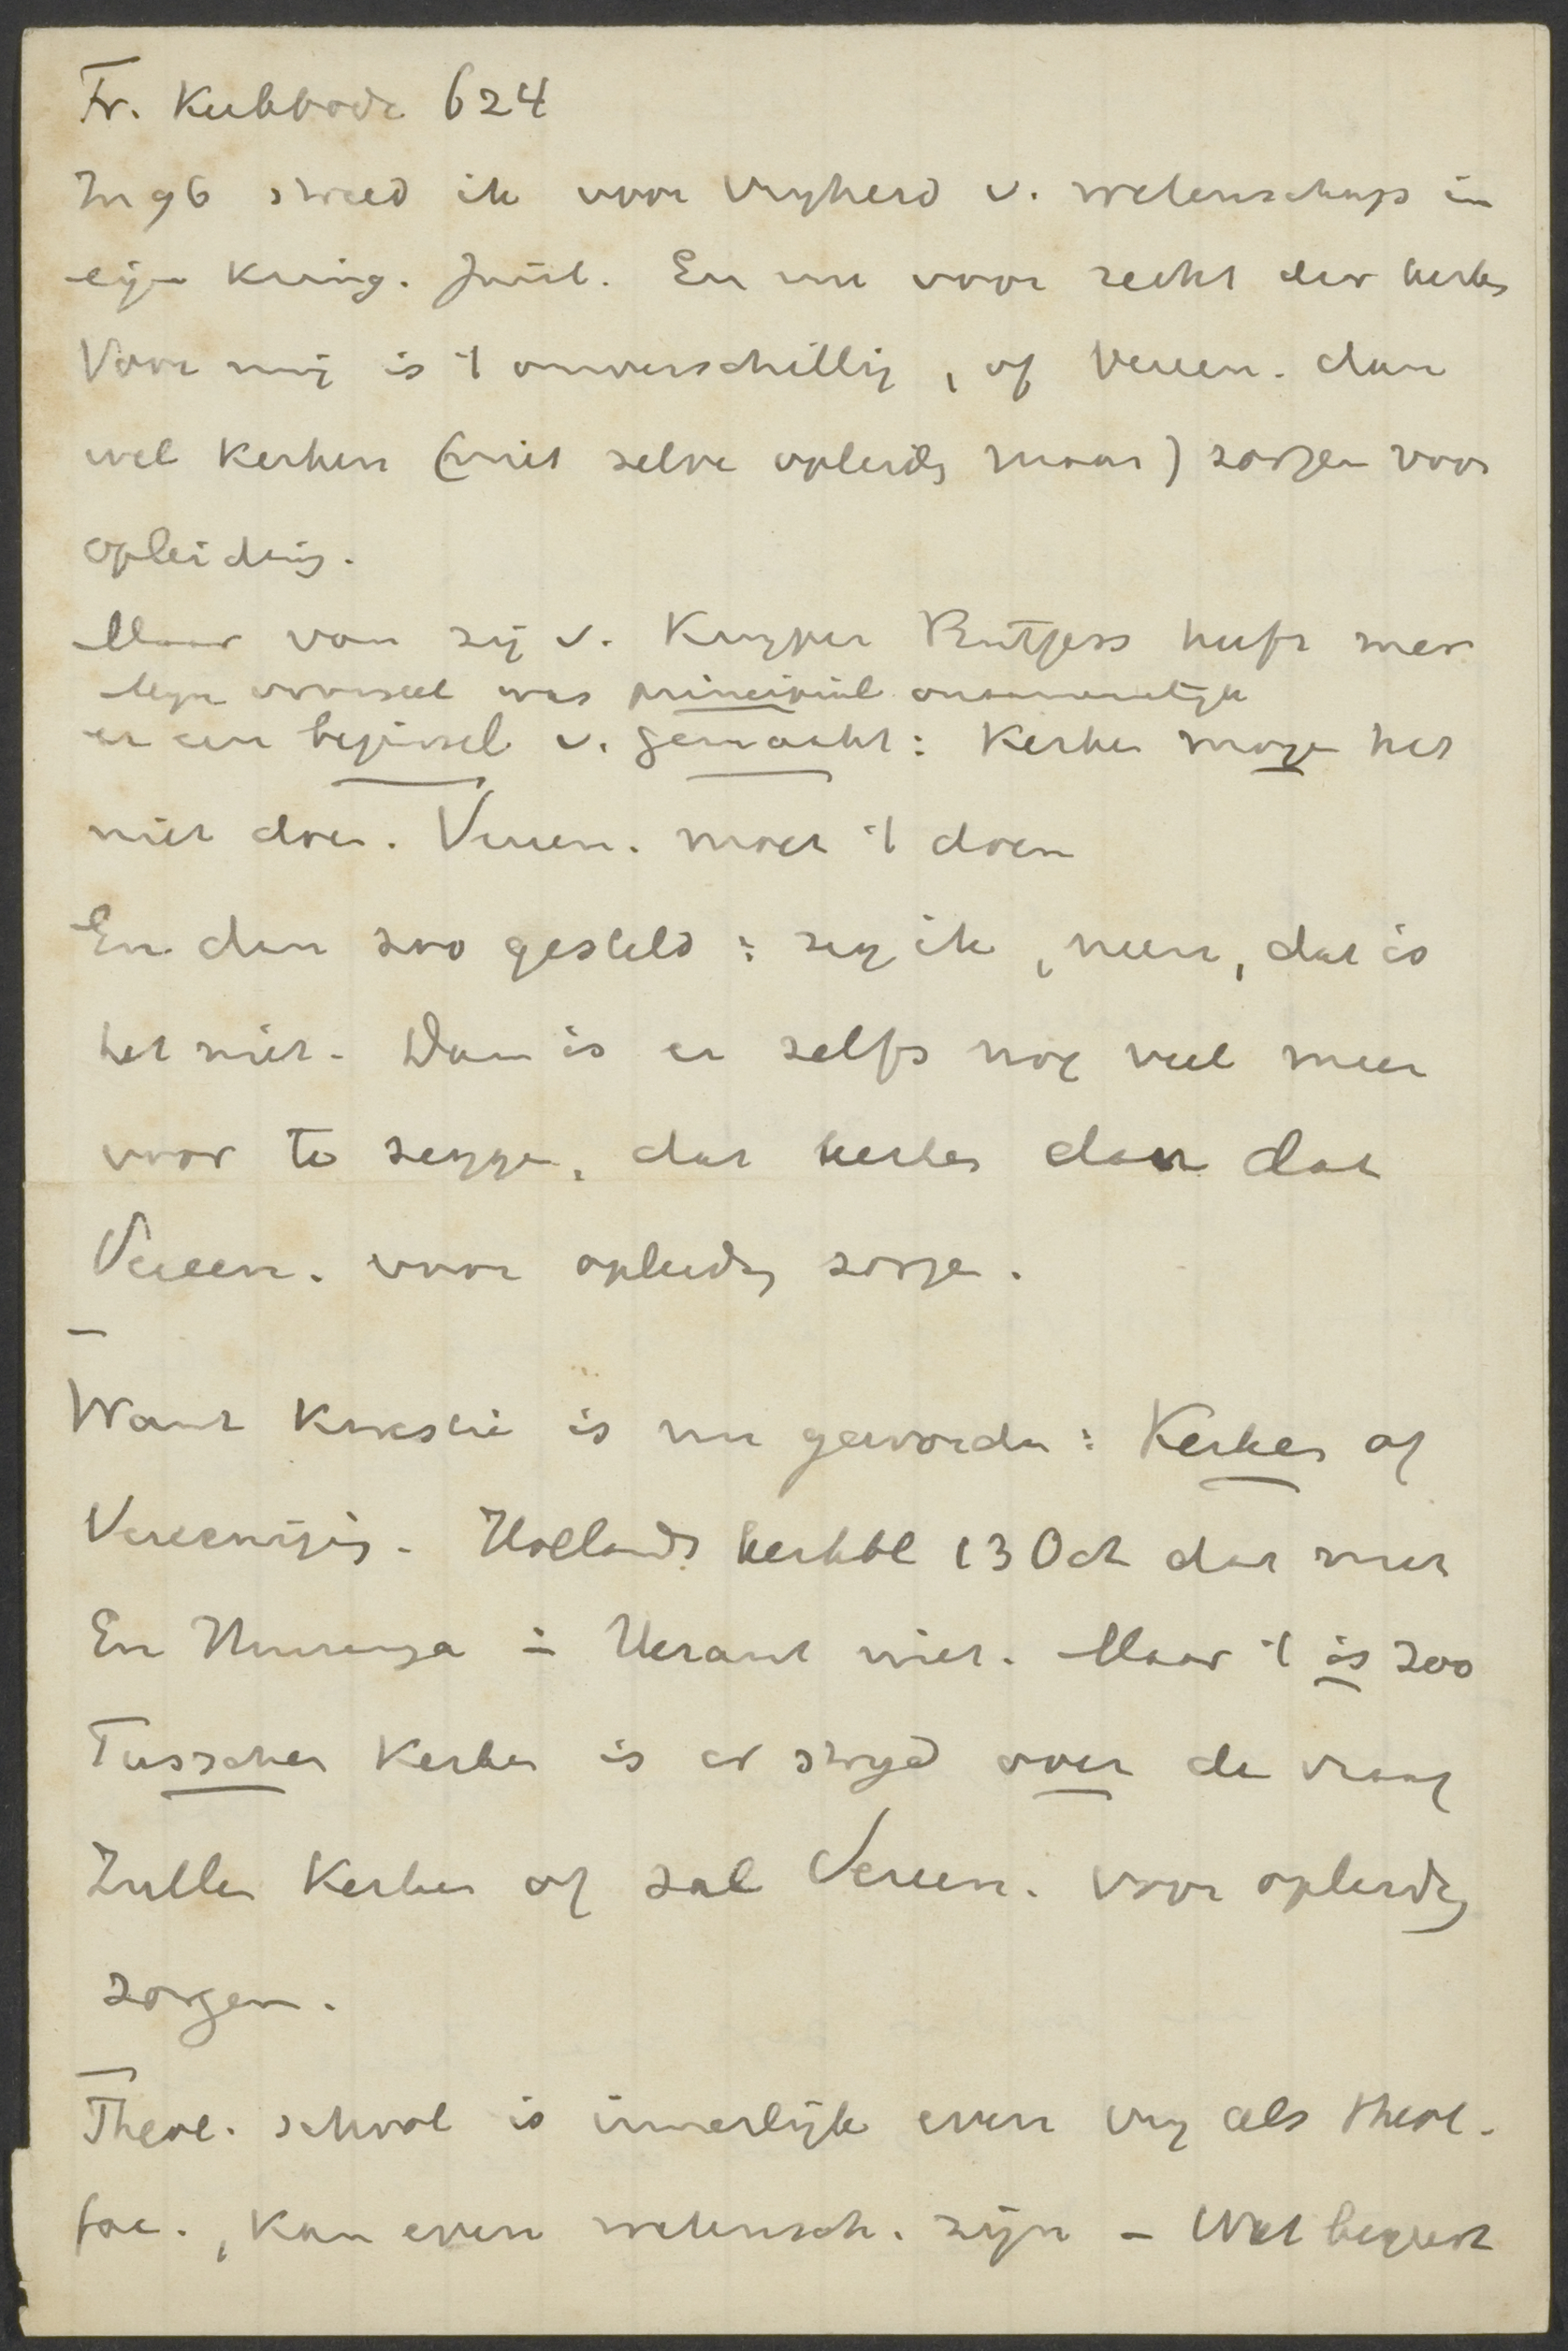 Fr. Kerkbode 624
In 96 streed ik voor vrijheid v. wetenschap in
eigen kring. Juist. En nu voor recht der kerken
Voor mij is 't onverschillig, of Vereen. dan
wel Kerken (niet zelve opleidg maar) zorgen voor
opleiding.
Maar van zij v. Kuyper Rutgers heeft men
Mijn voorstel was principieel onaannemelijk
er een beginsel v. gemaakt: Kerken mogen het
niet doen. Vereen. moet 't doen
En dan zoo gesteld: zeg ik, neen, dat is
het niet. Dan is er zelfs nog veel meer
voor te zeggen, dat kerken dan dat
Vereen. voor opleidg zorge.
Want kwestie is nu geworden: Kerken of
Vereeniging. Hollands kerkbl 13 Oct dat niet
En in Heraut niet. Maar 't is zoo
Tusschen Kerken is er strijd over de vraag
Zullen Kerken of zal Vereen. voor opleidg
zorgen.
Theol. school is innerlijk even vrij als theol.
fac., kan even wetensch. zijn - Wat begeert